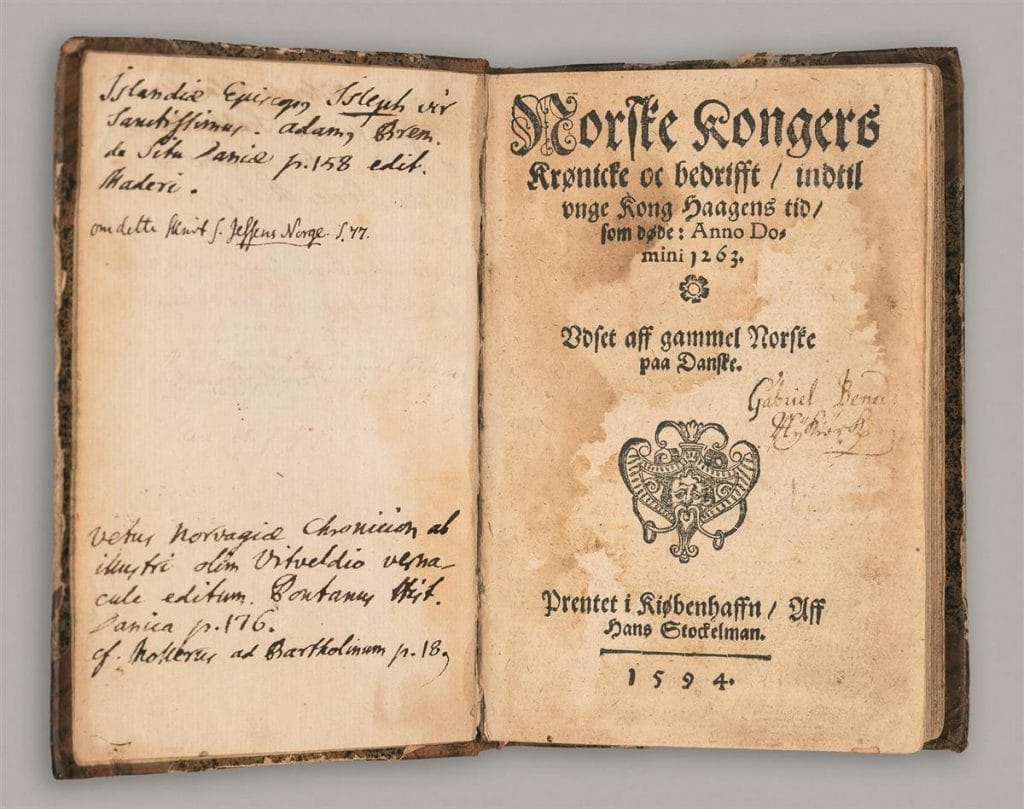 Islandiæ Episcop, Isleph vir
Sanctissimus. adam, Brem.
de Situ Daniæ p.158 edit.
Maderi.
om dette skrivt s. Jessens Norge. S. 77.
vetus Norvagiæ Chronicion ab
illustri olim Vitveldio verna-
cule editum. Pontanus Hist.
Danica p.176.
cf. Mollerus ad Bartholinum p.18,
Norske Kongers
Krønicke oc bedrifft / indtil
vnge Kong Haagens tid /
som døde: Anno Do-
mini 1263.
Vdset aff gammel Norske
paa Danske.
Gabriel
Prentet i Kiøbenhaffn / Aff
Hans Stockelman.
1594.